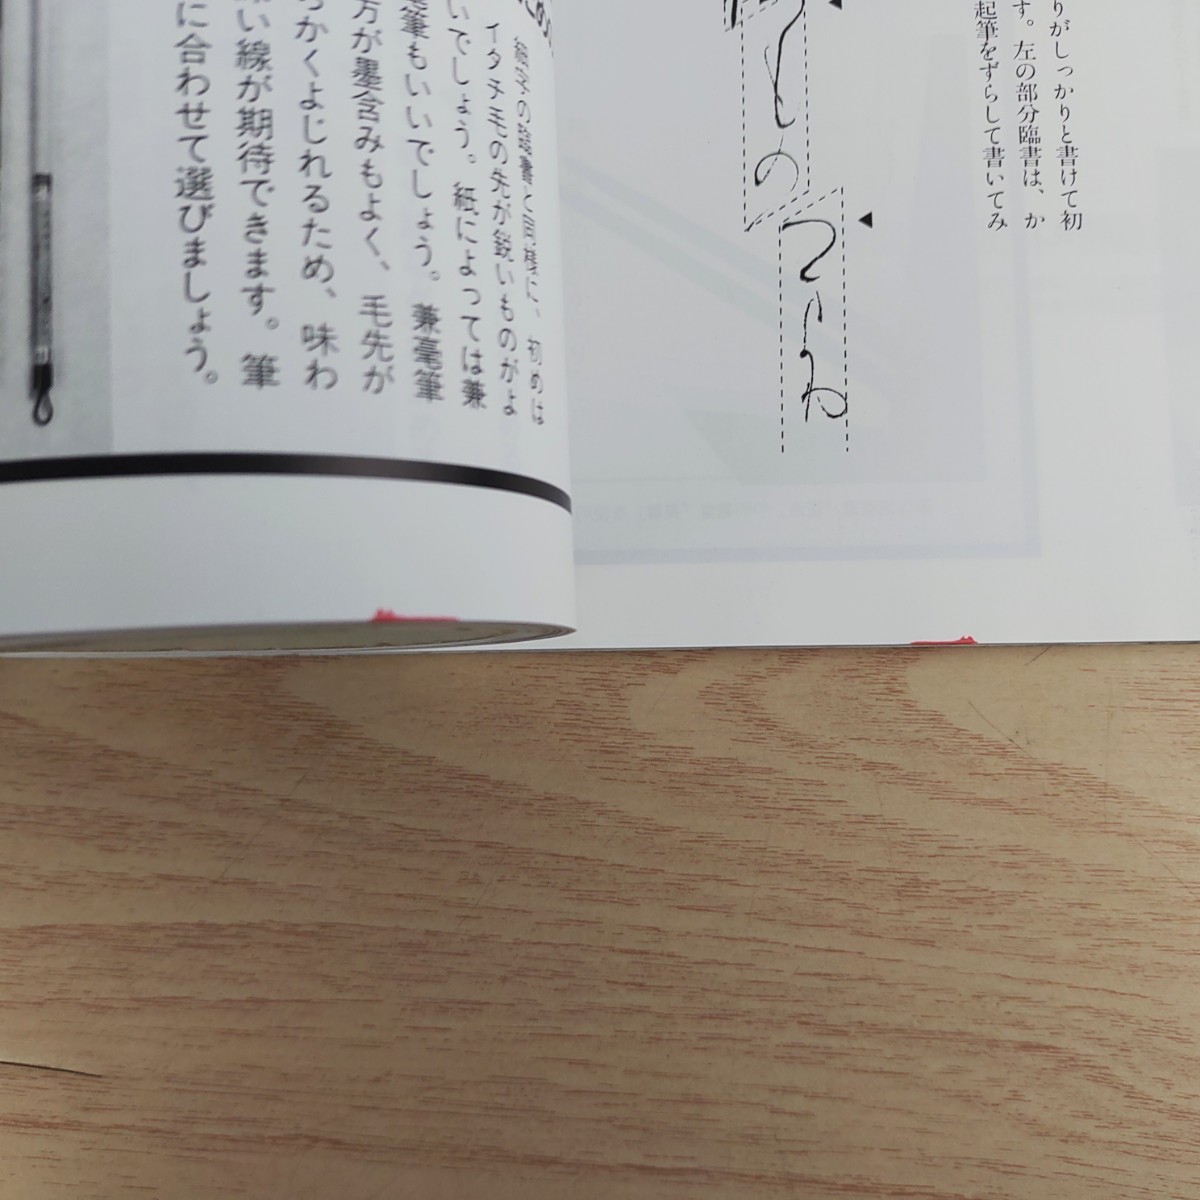 りがしっかりと書けて初
す。左の部分臨書は、か
起筆をずらして書いてみ
の
つりね
細字の臨書と同様に、初めは
イタチ毛の先が鋭いものがよ
いでしょう。紙によっては兼
毫筆もいいでしょう。兼毫筆
方が墨含みもよく、毛先が
らかくよじれるため、味わ
い線が期待できます。筆
に合わせて選びましょう。